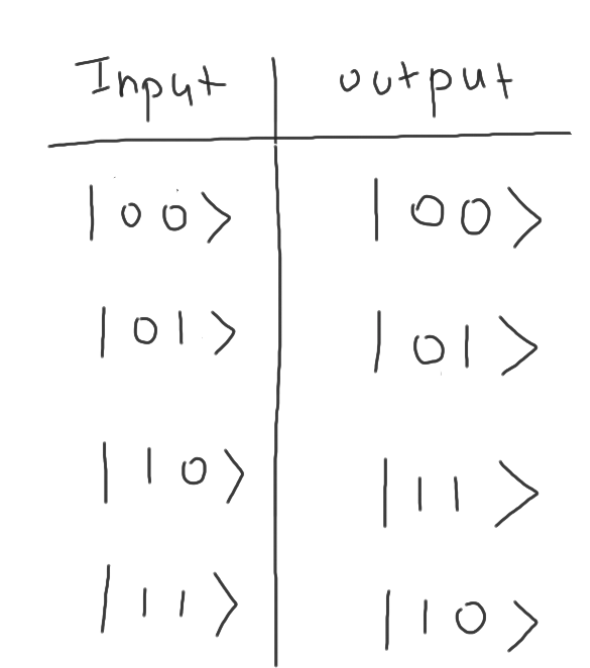 Input | output
|00⟩ | |00⟩
|01⟩ | |01⟩
|10⟩ | |11⟩
|11⟩ | |10⟩